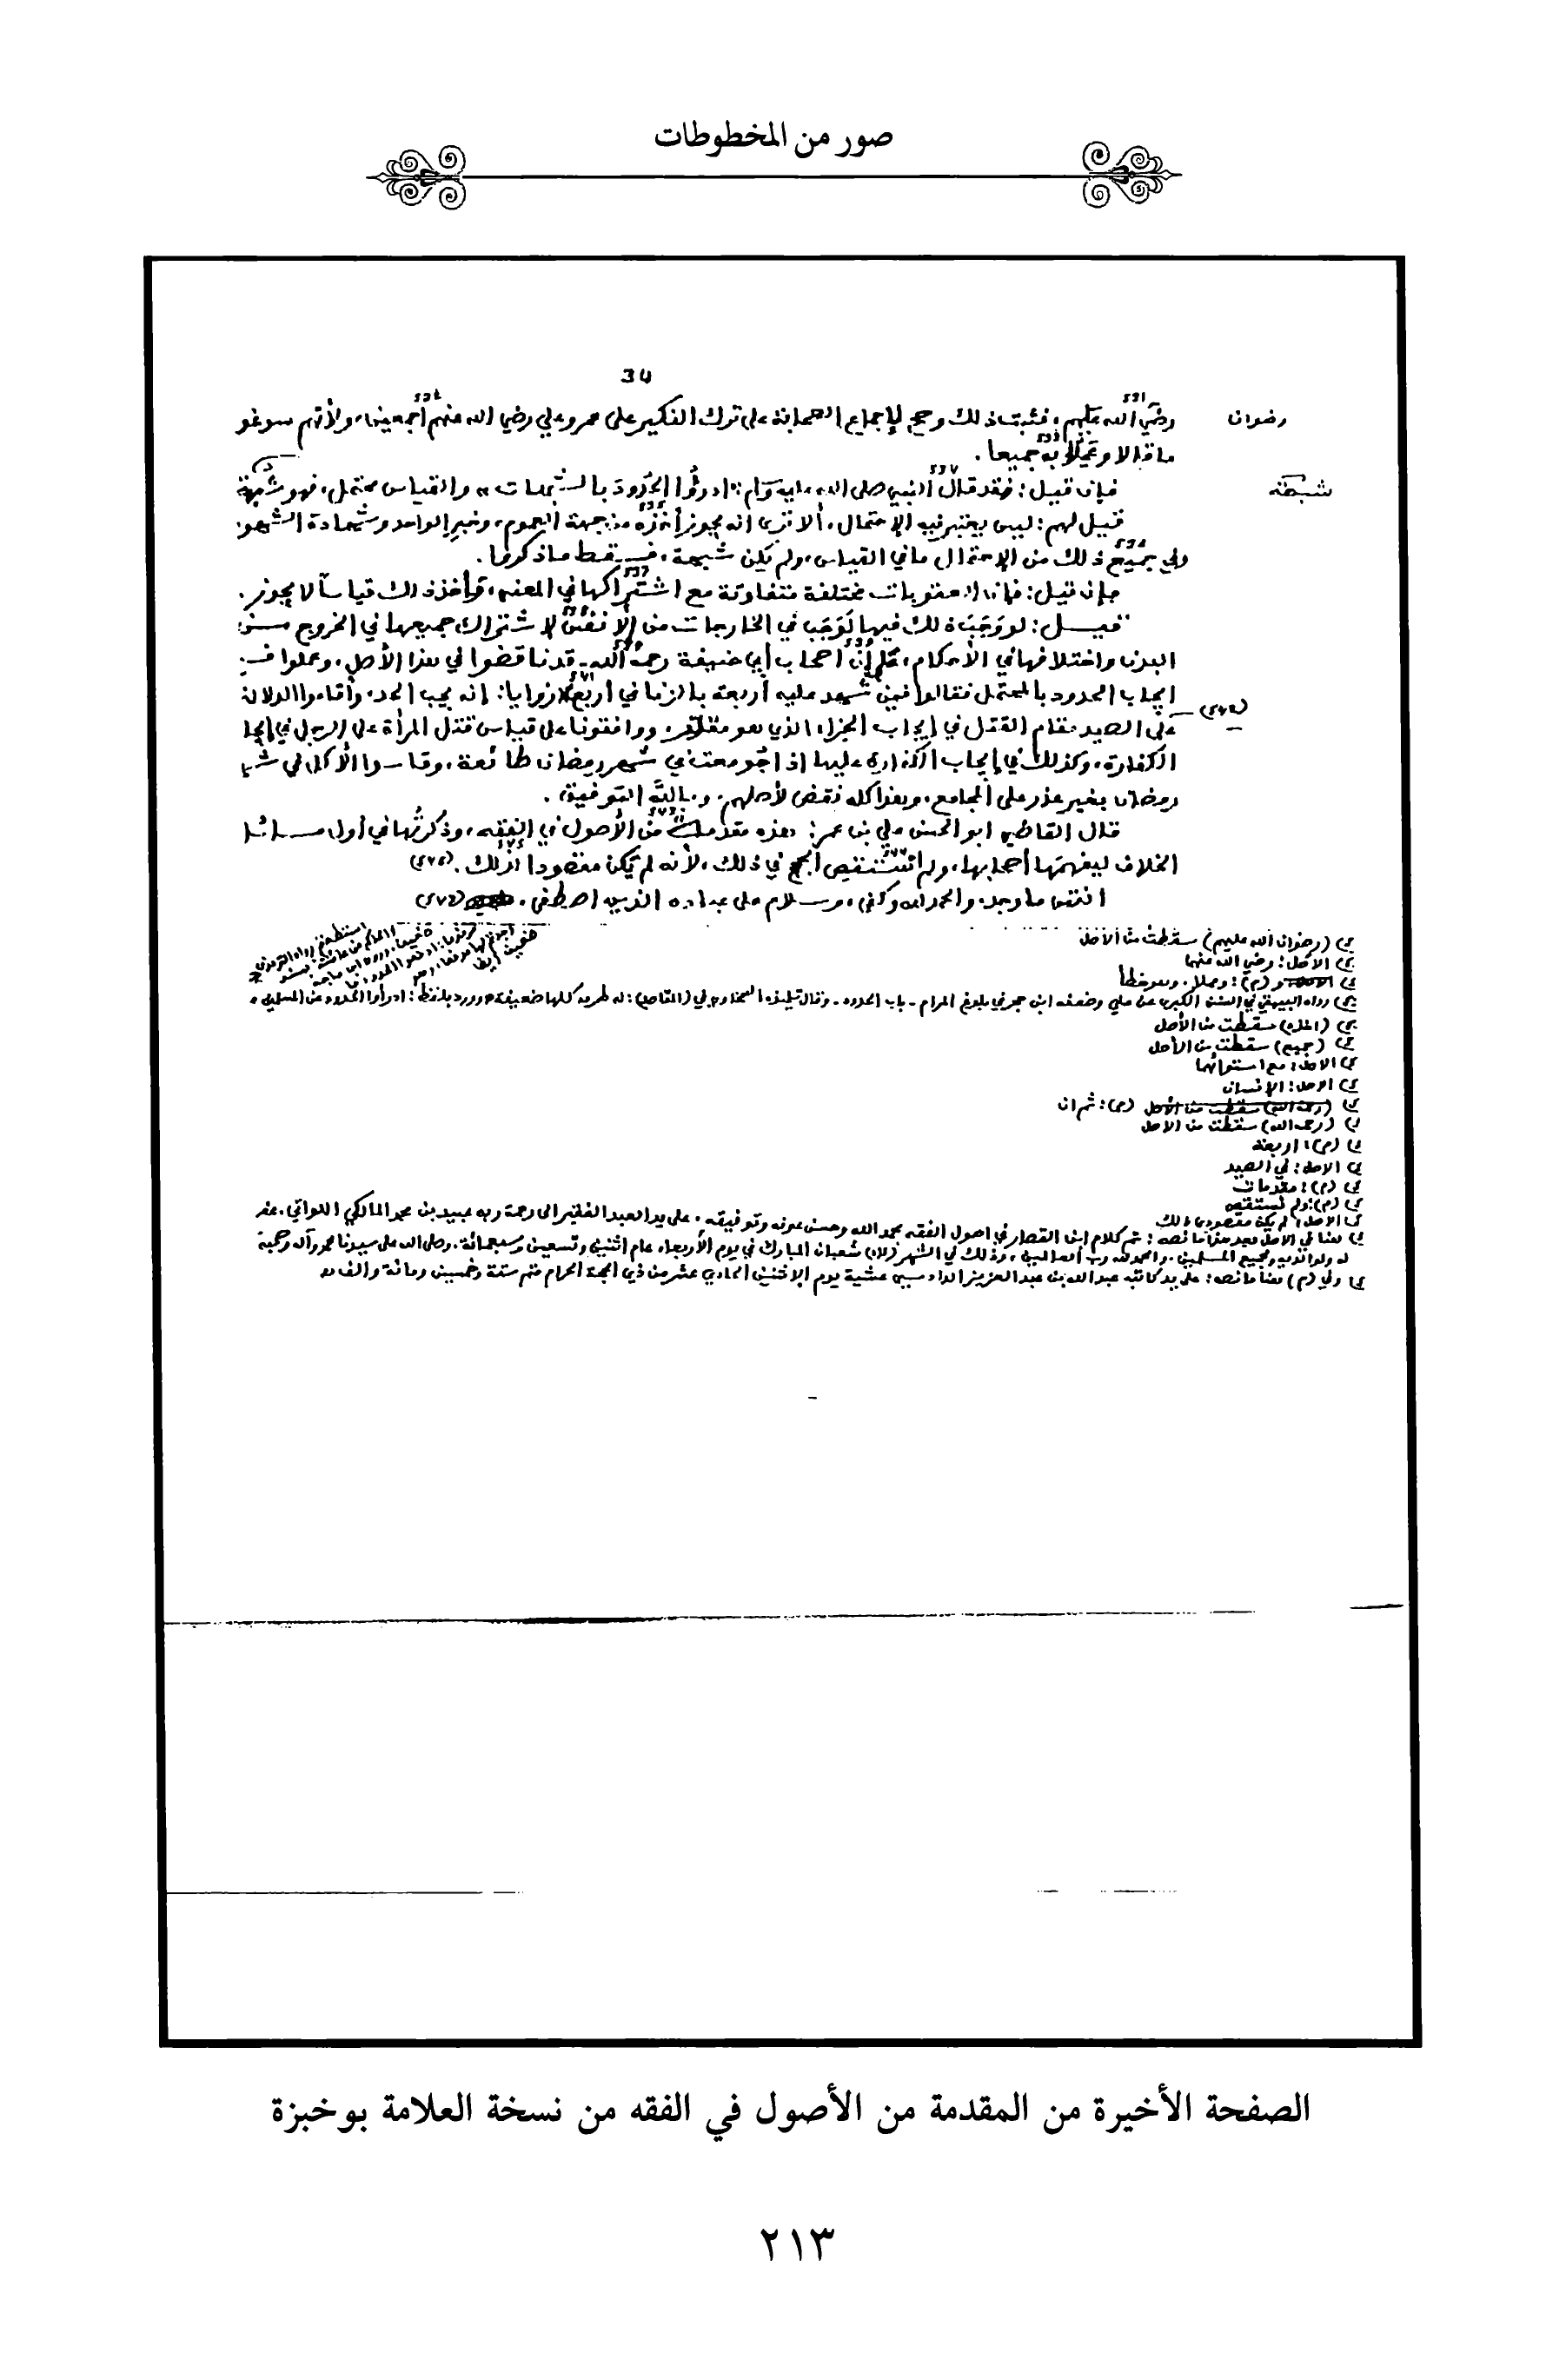 صور من المخطوطات
34
رضي الله عنهم، فثبت ذلك وصح لإجماع الصحابة على ترك النكير على عمر وعلي رضي الله عنهم أجمعين، ولأنهم سوغو
رضوان
ما قالا و به جميعا.
فإن قيل: فقد قال النبي صلى الله عليه وسلم: "ادرؤا الحدود بالشبهات" والقياس محتمل، فهو شبهة
شبهة
قيل لهم: ليس يعتبر فيه الإحتمال، ألا ترى انه يجوز أخذه من جهة العموم، وخبر الواحد وشهادة الشهو
وفي جميع ذلك من الإحتمال ما في القياس، ولم يكن شبهة، فسقط ما ذكرنا.
فإن قيل: فإن العقوبات مختلفة متفاوتة مع اشتراكها في المعنى، وأخذ ذلك قياساً لا يجوز.
قيل: لو وجب ذلك فيها لوجب في الخارجات من لاشتراك جميعها في الخروج من
البدن واختلافها في الأحكام، على أن أصحاب أبي حنيفة رحمه الله قد ناقضوا في هذا الأصل، وعملوا في
ايجاب الحدود بالمحتمل فقالوا فيمن شهد عليه أربعة بالزنا في أربع زوايا: إنه يجب الحد، وأقاموا الدلالة
على الصيد مقام القتل في إيجاب الجزاء الذي هو مقدر، ووافقونا على قياس قتل المرأة على الرجل في إيجا
الكفارة، وكذلك في إيجاب الكفارة عليها اذا جومعت في شهر رمضان طائعة، وقاسوا الأكل في شهر
رمضان بغير عذر على المجامع، وهذا كله نقض لأصلهم. وبالله التوفيق.
قال القاضي ابو الحسن علي بن عمر: هذه مقدمات من الأصول في الفقه، وذكرتها في أول مسائل
الخلاف ليفهمها أصحابها، ولم الحجج في ذلك، لأنه لم يكن مقصودا لذلك.
انتهى ما وجد، والحمد لله وكفى، وسلام على عباده الذين اصطفى.
(رضوان الله عليهم) سقطت من الأصل
الأصل: رضي الله عنهما
و (م): وعملا. وهو خطأ
رواه البيهقي في السنن الكبرى عن علي وضعفه ابن حجر في بلوغ المرام - باب الحدود - وقال تلميذه السخاوي في (المقاصد): له طرق كلها ضعيفة وورد بلفظ: ادرأوا الحدود عن المسلمين
سقطت من الأصل
(جميع) سقطت من الأصل
الأصل: مع استوائها
الأصل: الإنسان
(م): ثم ان
(رحمه الله) سقطت من الأصل
(م): اربعة
الأصل: في الصيد
(م): مقدمات
(م): ولم نستقص
الأصل: لم يكن مقصودي ذلك
هنا في الأصل بعد هذا ما نصه: تم كلام ابن القصار في اصول الفقه بحمد الله وحسن عونه وتوفيقه. على يد العبد الفقير الى رحمة ربه عبيد بن محمد المالكي اللواتي. غفر
له ولوالديه ولجميع المسلمين. والحمد لله رب العالمين، وذلك في الشهر شعبان المبارك في يوم الأربعاء عام اثنين وتسعين وسبعمائة. وصلى الله على سيدنا محمد وآله وصحبه
وفي (م) هنا ما نصه: على يد كاتبه عبد الله بن عبد العزيز عشية يوم الاثنين الحادي عشر من ذي الحجة الحرام متم ستة وخمسين ومائة والف
الصفحة الأخيرة من المقدمة من الأصول في الفقه من نسخة العلامة بوخبزة
٢١٣